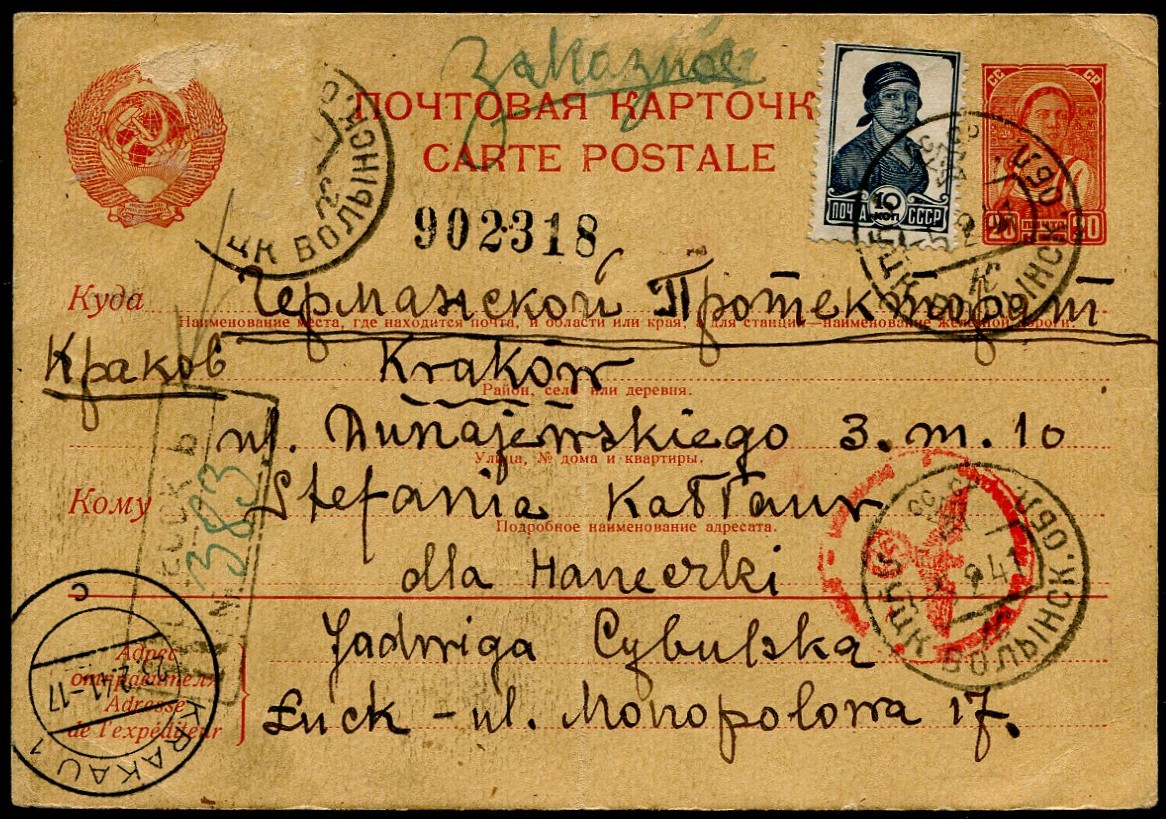 Заказное
ПОЧТОВАЯ КАРТОЧК
CARTE POSTALE
СС СР
10 КОП
ПОЧТА СССР
20 20
902318
Куда Германской Протекторат
Наименование места, где находится почта, и области или края, а для станций—наименование железной дороги.
Краков Kraków
Район, село или деревня.
ul. Dunajewskiego 3. m. 10
Улица, № дома и квартиры.
Кому Stefania
Подробное наименование адресата.
383
№
dla Haneczki
Адрес отправителя
Adresse de l'expéditeur
Jadwiga Cybulska
Łuck - ul. Monopolowa 17.
ЦК ВОЛЫНСКО
ВОЛЫНСК. ОБЛ.
ВОЛЫНСК. ОБЛ.
2 41
KRAKAU 1
C
2 41-17